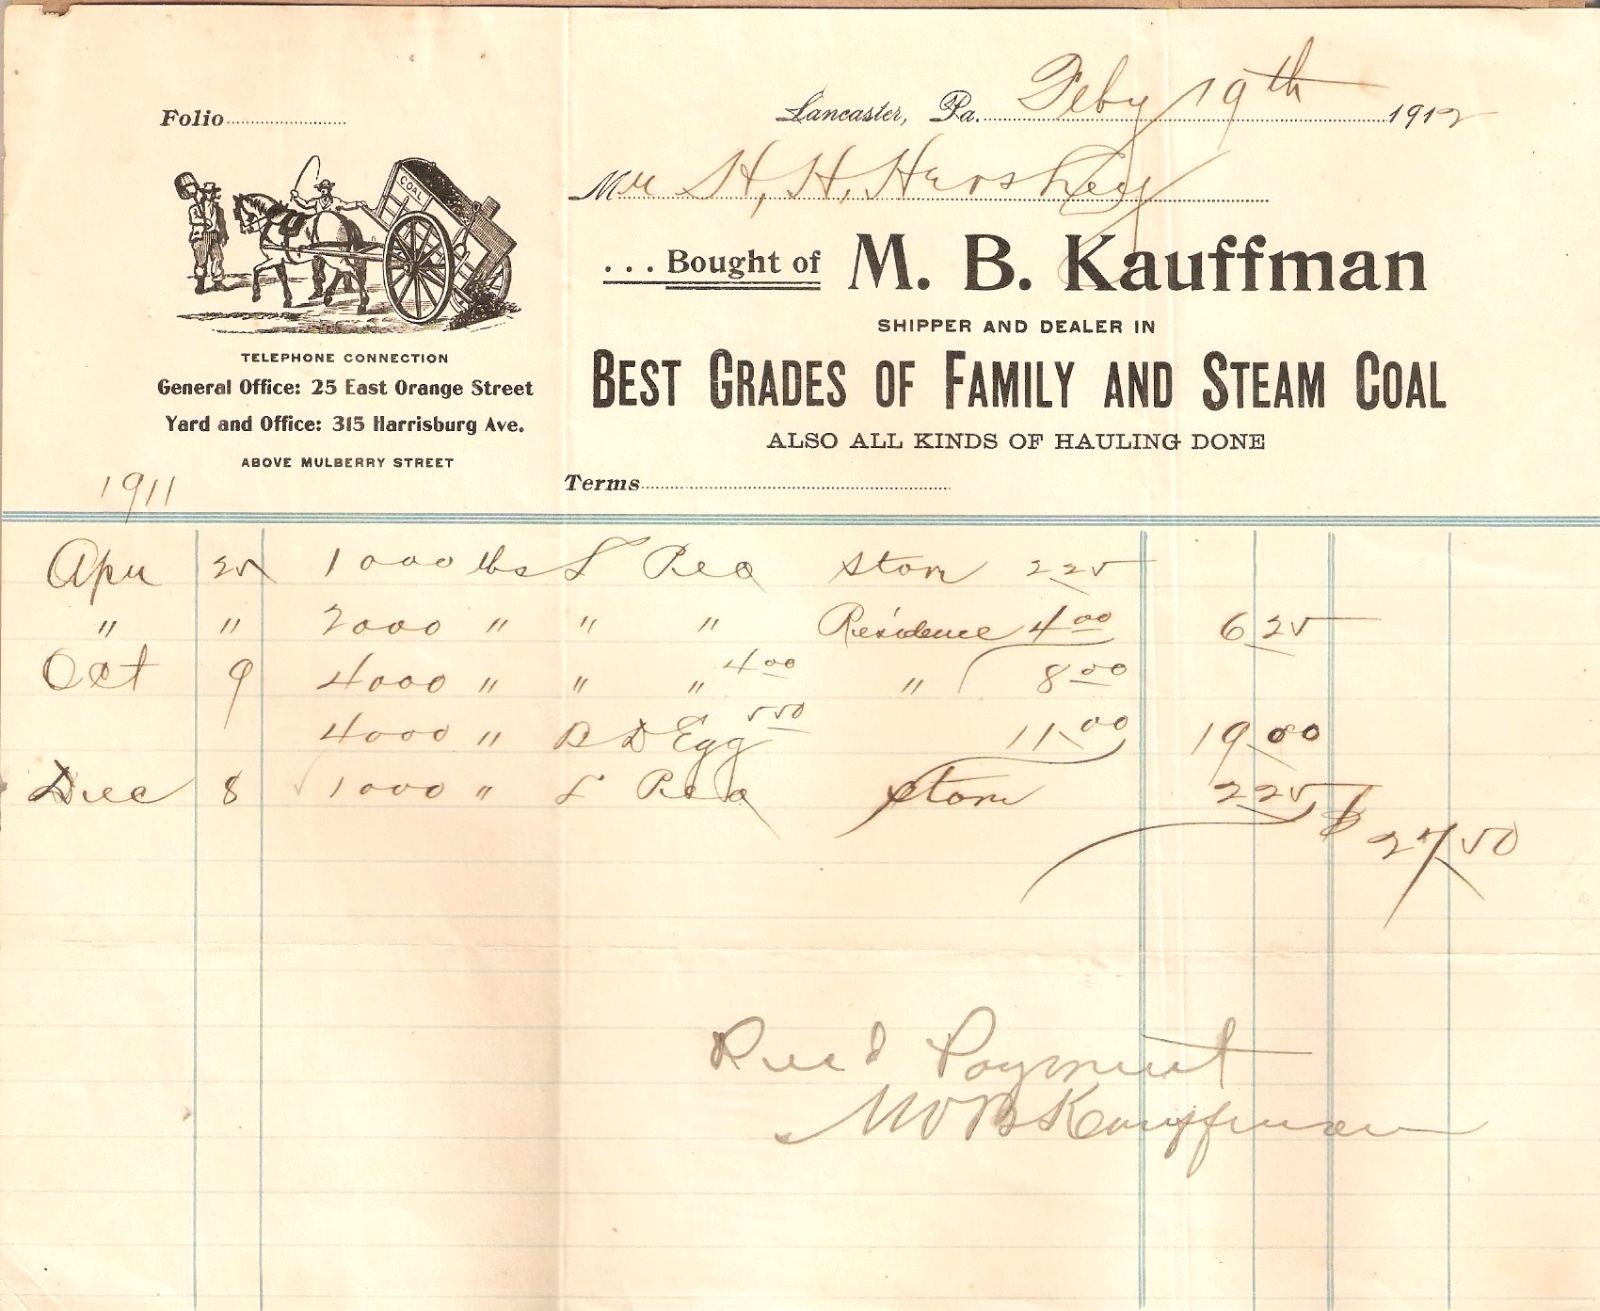 Folio
Lancaster, Pa. Feby 19th 1912
Mr H. H. Hershey
COAL
... Bought of M. B. Kauffman
SHIPPER AND DEALER IN
BEST GRADES OF FAMILY AND STEAM COAL
ALSO ALL KINDS OF HAULING DONE
TELEPHONE CONNECTION
General Office: 25 East Orange Street
Yard and Office: 315 Harrisburg Ave.
ABOVE MULBERRY STREET
Terms
1911
Apr 25 1000 lbs L Pea Store 2 25
" " 2000 " " " Residence 4 00 6 25
Oct 9 4000 " " " 4 00 " 8 00
4000 " B D Egg 5 50 11 00 19 00
Dec 8 1000 " L Pea Store 2 25
$ 27 50
Rec'd Payment
M B Kauffman